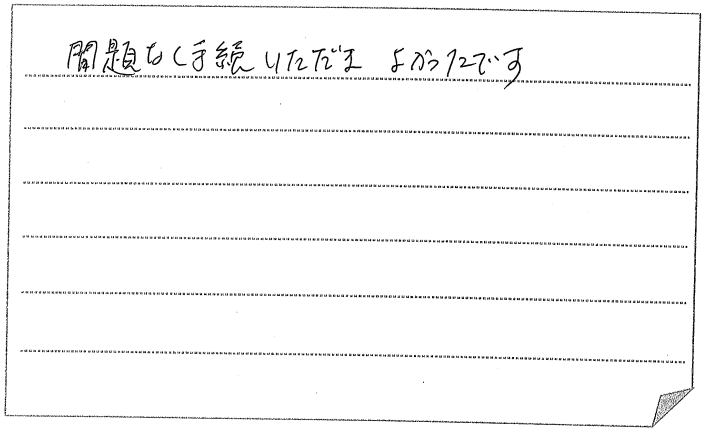 問題なく手続いただき よかったです